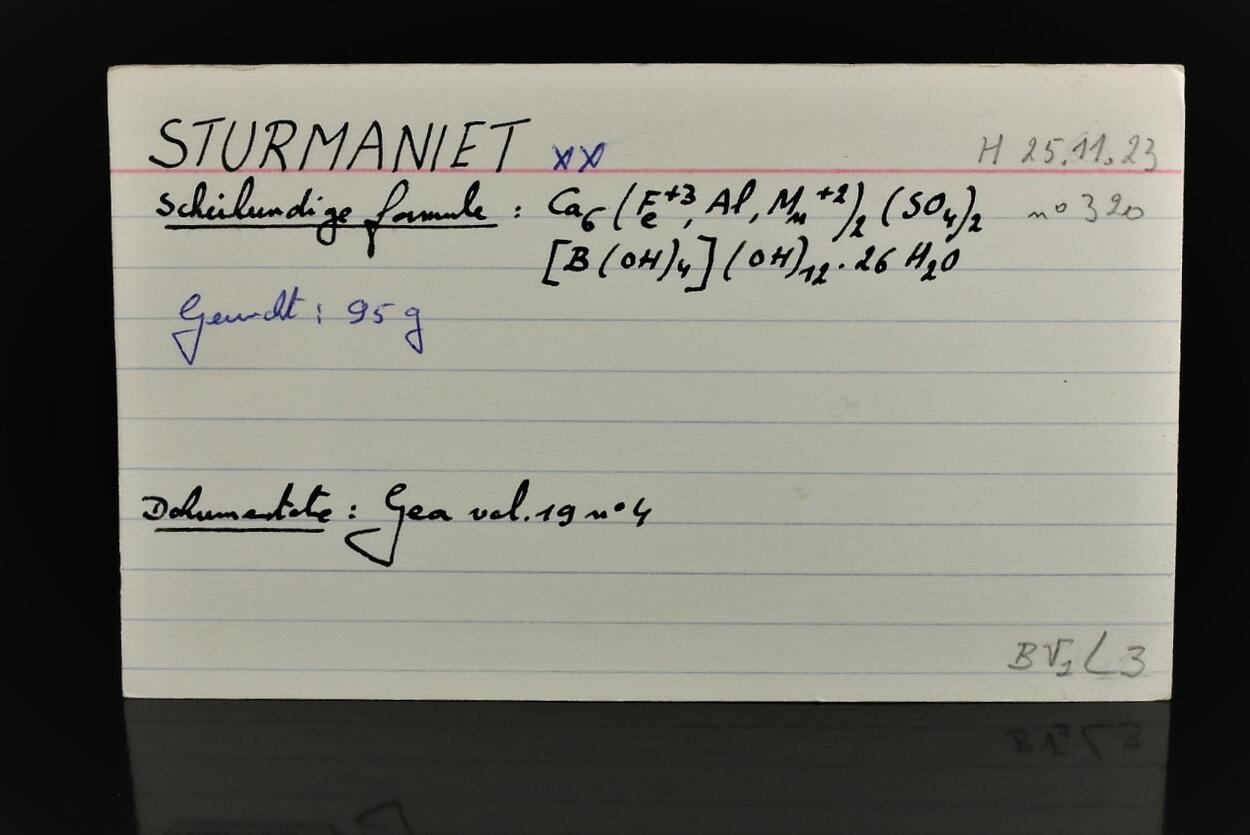 STURMANIET xx H 25.11.23
Scheikundige formule : Ca₆(Fe⁺³, Al, Mn⁺²)₂(SO₄)₂ n° 320
[B(OH)₄](OH)₁₂·26 H₂O
Gewicht : 95 g
Dokumentatie : Gea vol. 19 n° 4